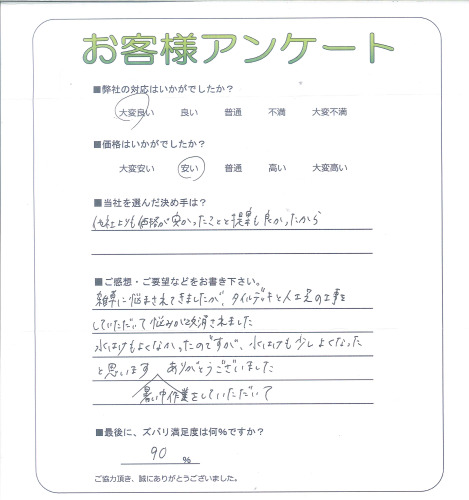 お客様アンケート
■弊社の対応はいかがでしたか？
大変良い　良い　普通　不満　大変不満
■価格はいかがでしたか？
大変安い　安い　普通　高い　大変高い
■当社を選んだ決め手は？
他社よりも価格が安かったことと提案も良かったから
■ご感想・ご要望などをお書き下さい。
雑草に悩まされてきましたが、タイルデッキと人工芝の工事を
していただいて悩みが解消されました
水はけもよくなかったのですが、水はけも少しよくなった
と思います　ありがとうございました
暑い中作業をしていただいて
■最後に、ズバリ満足度は何%ですか？
90 %
ご協力頂き、誠にありがとうございました。